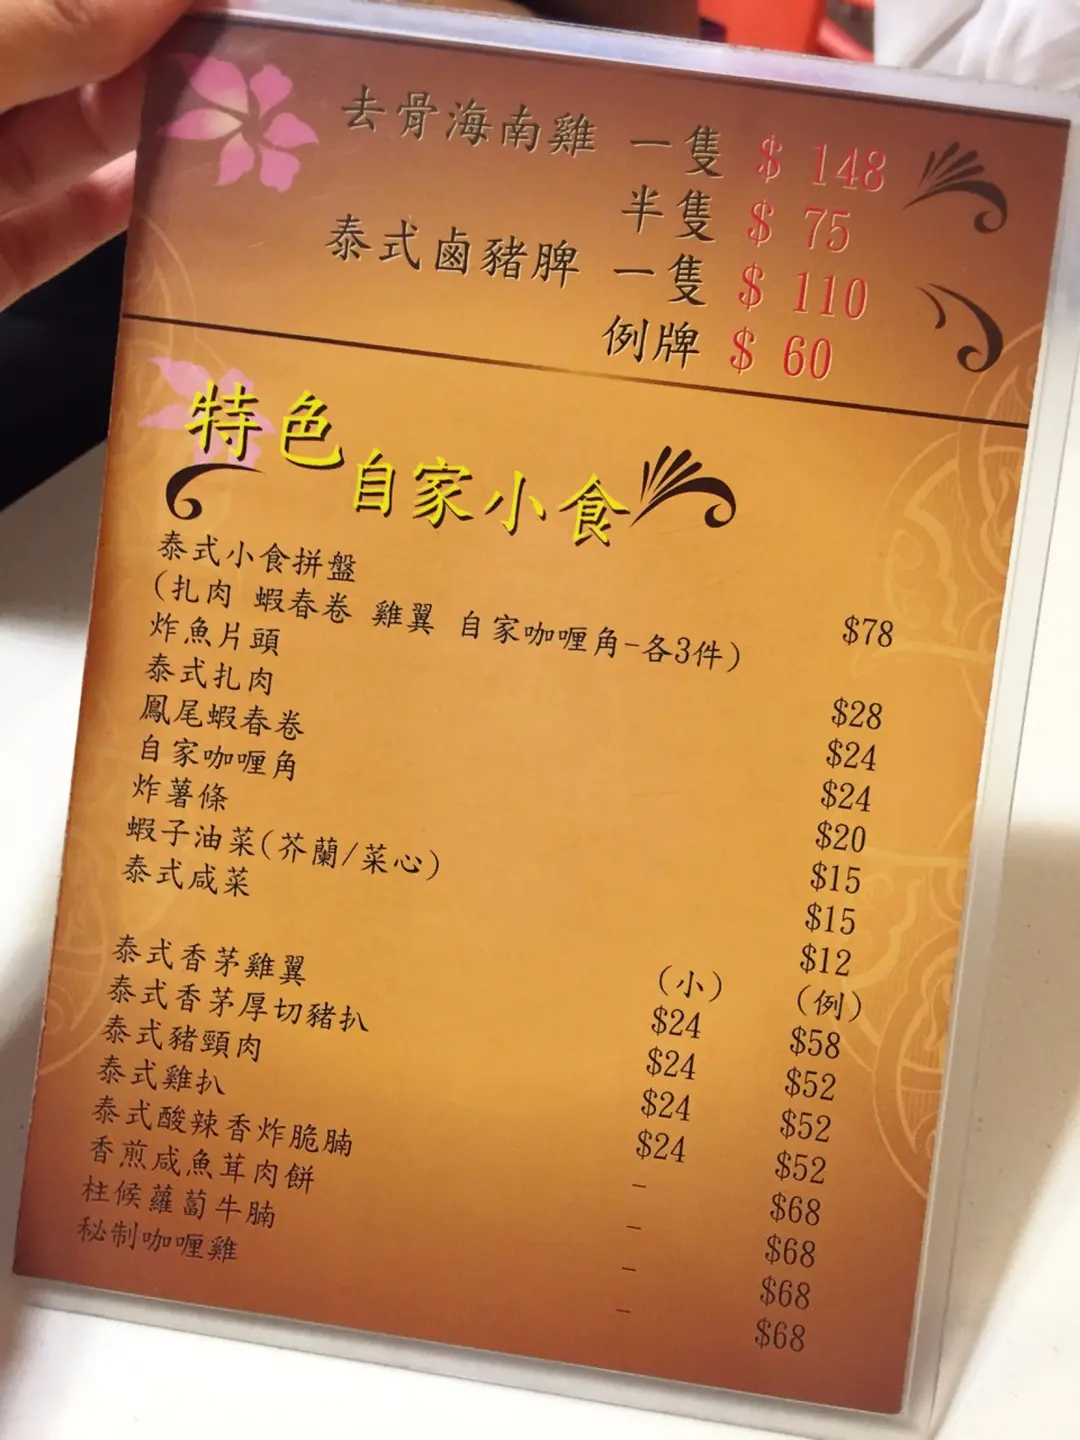 去骨海南雞 一隻 $ 148
半隻 $ 75
泰式鹵豬脾 一隻 $ 110
例牌 $ 60
特色
自家小食
泰式小食拼盤 $78
(扎肉 蝦春卷 雞翼 自家咖喱角-各3件)
炸魚片頭 $28
泰式扎肉 $24
鳳尾蝦春卷 $24
自家咖喱角 $20
炸薯條 $15
蝦子油菜(芥蘭/菜心) $15
泰式咸菜 $12
(小) (例)
泰式香茅雞翼 $24 $58
泰式香茅厚切豬扒 $24 $52
泰式豬頸肉 $24 $52
泰式雞扒 $24 $52
泰式酸辣香炸脆腩 - $68
香煎咸魚茸肉餅 - $68
柱候蘿蔔牛腩 - $68
秘制咖喱雞 - $68